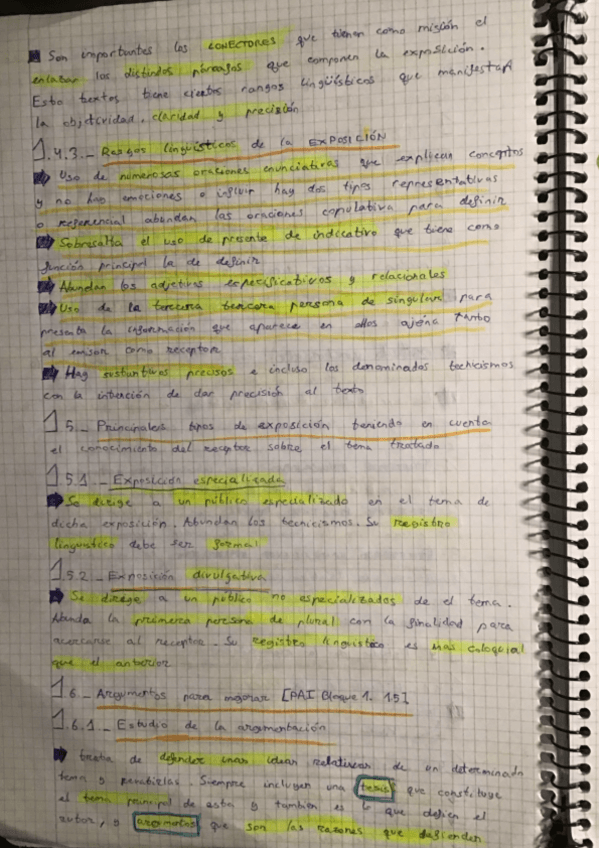 Son importantes los CONECTORES que tienen como misión el
enlazar los distintos párrafos que componen la exposición.
Esto textos tiene ciertos rangos lingüísticos que manifestan
la objetividad, claridad y precisión
1.4.3.- Rasgos lingüísticos de la EXPOSICIÓN
Uso de numerosas oraciones enunciativas que explican conceptos
y no hay emociones o influir hay dos tipos representativas
o referencial abundan las oraciones copulativa para definir
Sobresalta el uso de presente de indicativo que tiene como
función principal la de definir
Abundan los adjetivos especificativos y relacionales
Uso de la tercera tercera persona de singular para
presenta la información que aparece en ellos ajena tanto
al emisor como receptor
Hay sustantivos precisos e incluso los denominados technicismos
con la intención de dar precisión al texto
1.5.- Principales tipos de exposición teniendo en cuenta
el conocimiento del receptor sobre el tema tratado
1.5.1.- Exposición especializada
Se dirige a un público especializado en el tema de
dicha exposición. Abundan los tecnicismos. Su registro
linguistico debe ser formal
1.5.2.- Exposición divulgativa
Se dirige a un público no especializados de el tema.
Abunda la primera persona de plural con la finalidad para
acercarse al receptor. Su registro lingüístico es más coloquial
que el anterior
1.6.- Argumentos para mejorar [PAI Bloque 1. 1.5]
1.6.1.- Estudio de la argumentación
trata de defender unas ideas relativas de un determinado
tema y Siempre incluyen una tesis que constituye
el tema principal de esta y también es lo que defien el
autor, y argumentos que son las razones que defienden